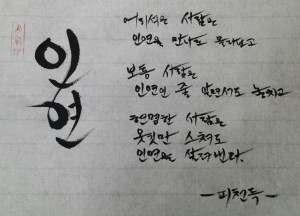 인연
어리석은 사람은
인연을 만나도 몰라보고
보통 사람은
인연인 줄 알면서도 놓치고
현명한 사람은
옷깃만 스쳐도
인연을 살려낸다.
-피천득-